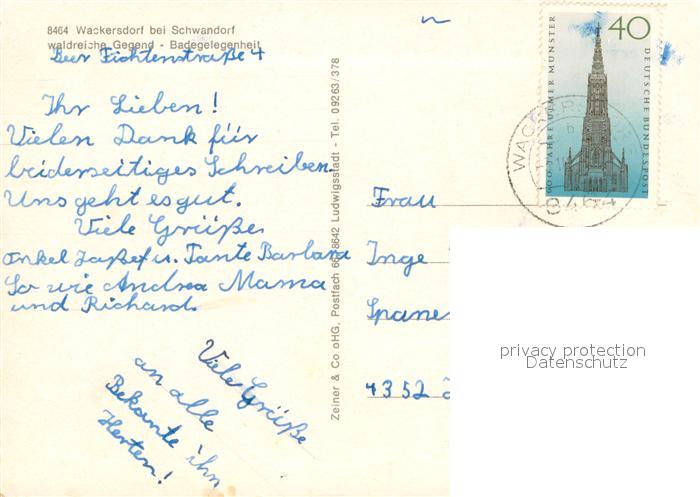 8464 Wackersdorf bei Schwandorf
waldreiche Gegend - Badegelegenheit
Beer Fichtenstraße 4
Ihr Lieben!
Vielen Dank für
beiderseitiges Schreiben.
Uns geht es gut.
Viele Grüße
Onkel Josef u. Tante Barbara
So wie Andrea Mama
und Richard.
Viele Grüße
an alle
Bekante ihn
Herten!
Zeiner & Co oHG, Postfach 66, 8642 Ludwigsstadt - Tel. 09263/378
40
600 JAHRE ULMER MÜNSTER
DEUTSCHE BUNDESPOST
8464
Frau
Inge
Spane
4352
privacy protection
Datenschutz